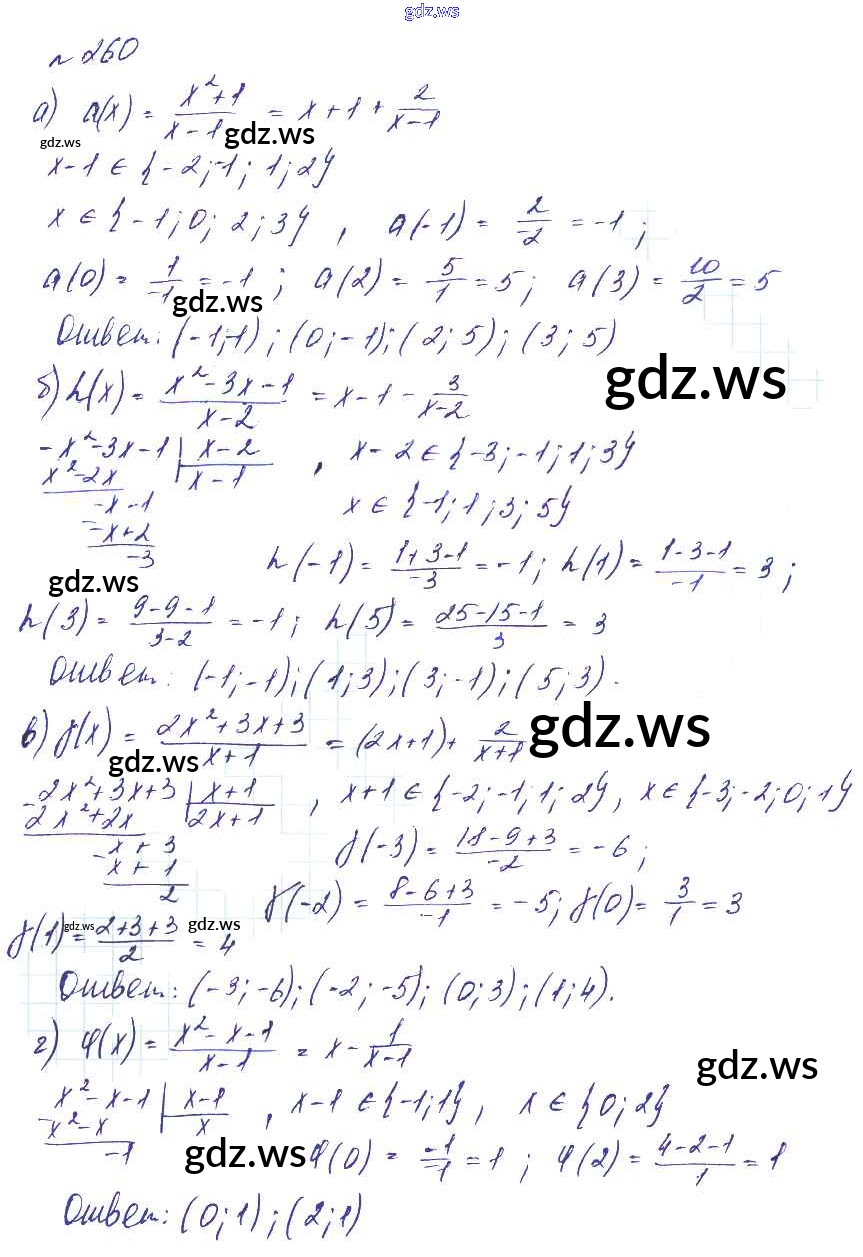 gdz.ws
№ 260
а) a(x) = \frac{x²+1}{x-1} = x+1+\frac{2}{x-1}
gdz.ws gdz.ws
x-1 ∈ {-2;-1; 1; 2}
x ∈ {-1; 0; 2; 3}, a(-1) = \frac{2}{-2} = -1;
a(0) = \frac{1}{-1} = -1; a(2) = \frac{5}{1} = 5; a(3) = \frac{10}{2} = 5
gdz.ws
Ответ: (-1;-1); (0; -1); (2; 5); (3; 5)
gdz.ws
б) h(x) = \frac{x²-3x-1}{x-2} = x-1-\frac{3}{x-2}
-x²-3x-1 | x-2 , x-2 ∈ {-3; -1; 1; 3}
x²-2x x-1
-x-1 x ∈ {-1; 1; 3; 5}
-x+2
-3 h(-1) = \frac{1+3-1}{-3} = -1; h(1) = \frac{1-3-1}{-1} = 3;
gdz.ws
h(3) = \frac{9-9-1}{3-2} = -1; h(5) = \frac{25-15-1}{3} = 3
Ответ: (-1; -1); (1; 3); (3; -1); (5; 3).
в) f(x) = \frac{2x²+3x+3}{x+1} = (2x+1)+\frac{2}{x+1}
gdz.ws gdz.ws
-2x²+3x+3 | x+1 , x+1 ∈ {-2; -1; 1; 2}, x ∈ {-3; -2; 0; 1}
2x²+2x 2x+1
-x+3 f(-3) = \frac{18-9+3}{-2} = -6;
x+1
2 f(-2) = \frac{8-6+3}{-1} = -5; f(0) = \frac{3}{1} = 3
f(1) = \frac{2+3+3}{2} = 4
gdz.ws gdz.ws
Ответ: (-3; -6); (-2; -5); (0; 3); (1; 4).
г) φ(x) = \frac{x²-x-1}{x-1} = x-\frac{1}{x-1}
gdz.ws
x²-x-1 | x-1 , x-1 ∈ {-1; 1}, x ∈ {0; 2}
-x²-x x
-1 φ(0) = \frac{-1}{-1} = 1; φ(2) = \frac{4-2-1}{1} = 1
gdz.ws
Ответ: (0; 1); (2; 1)